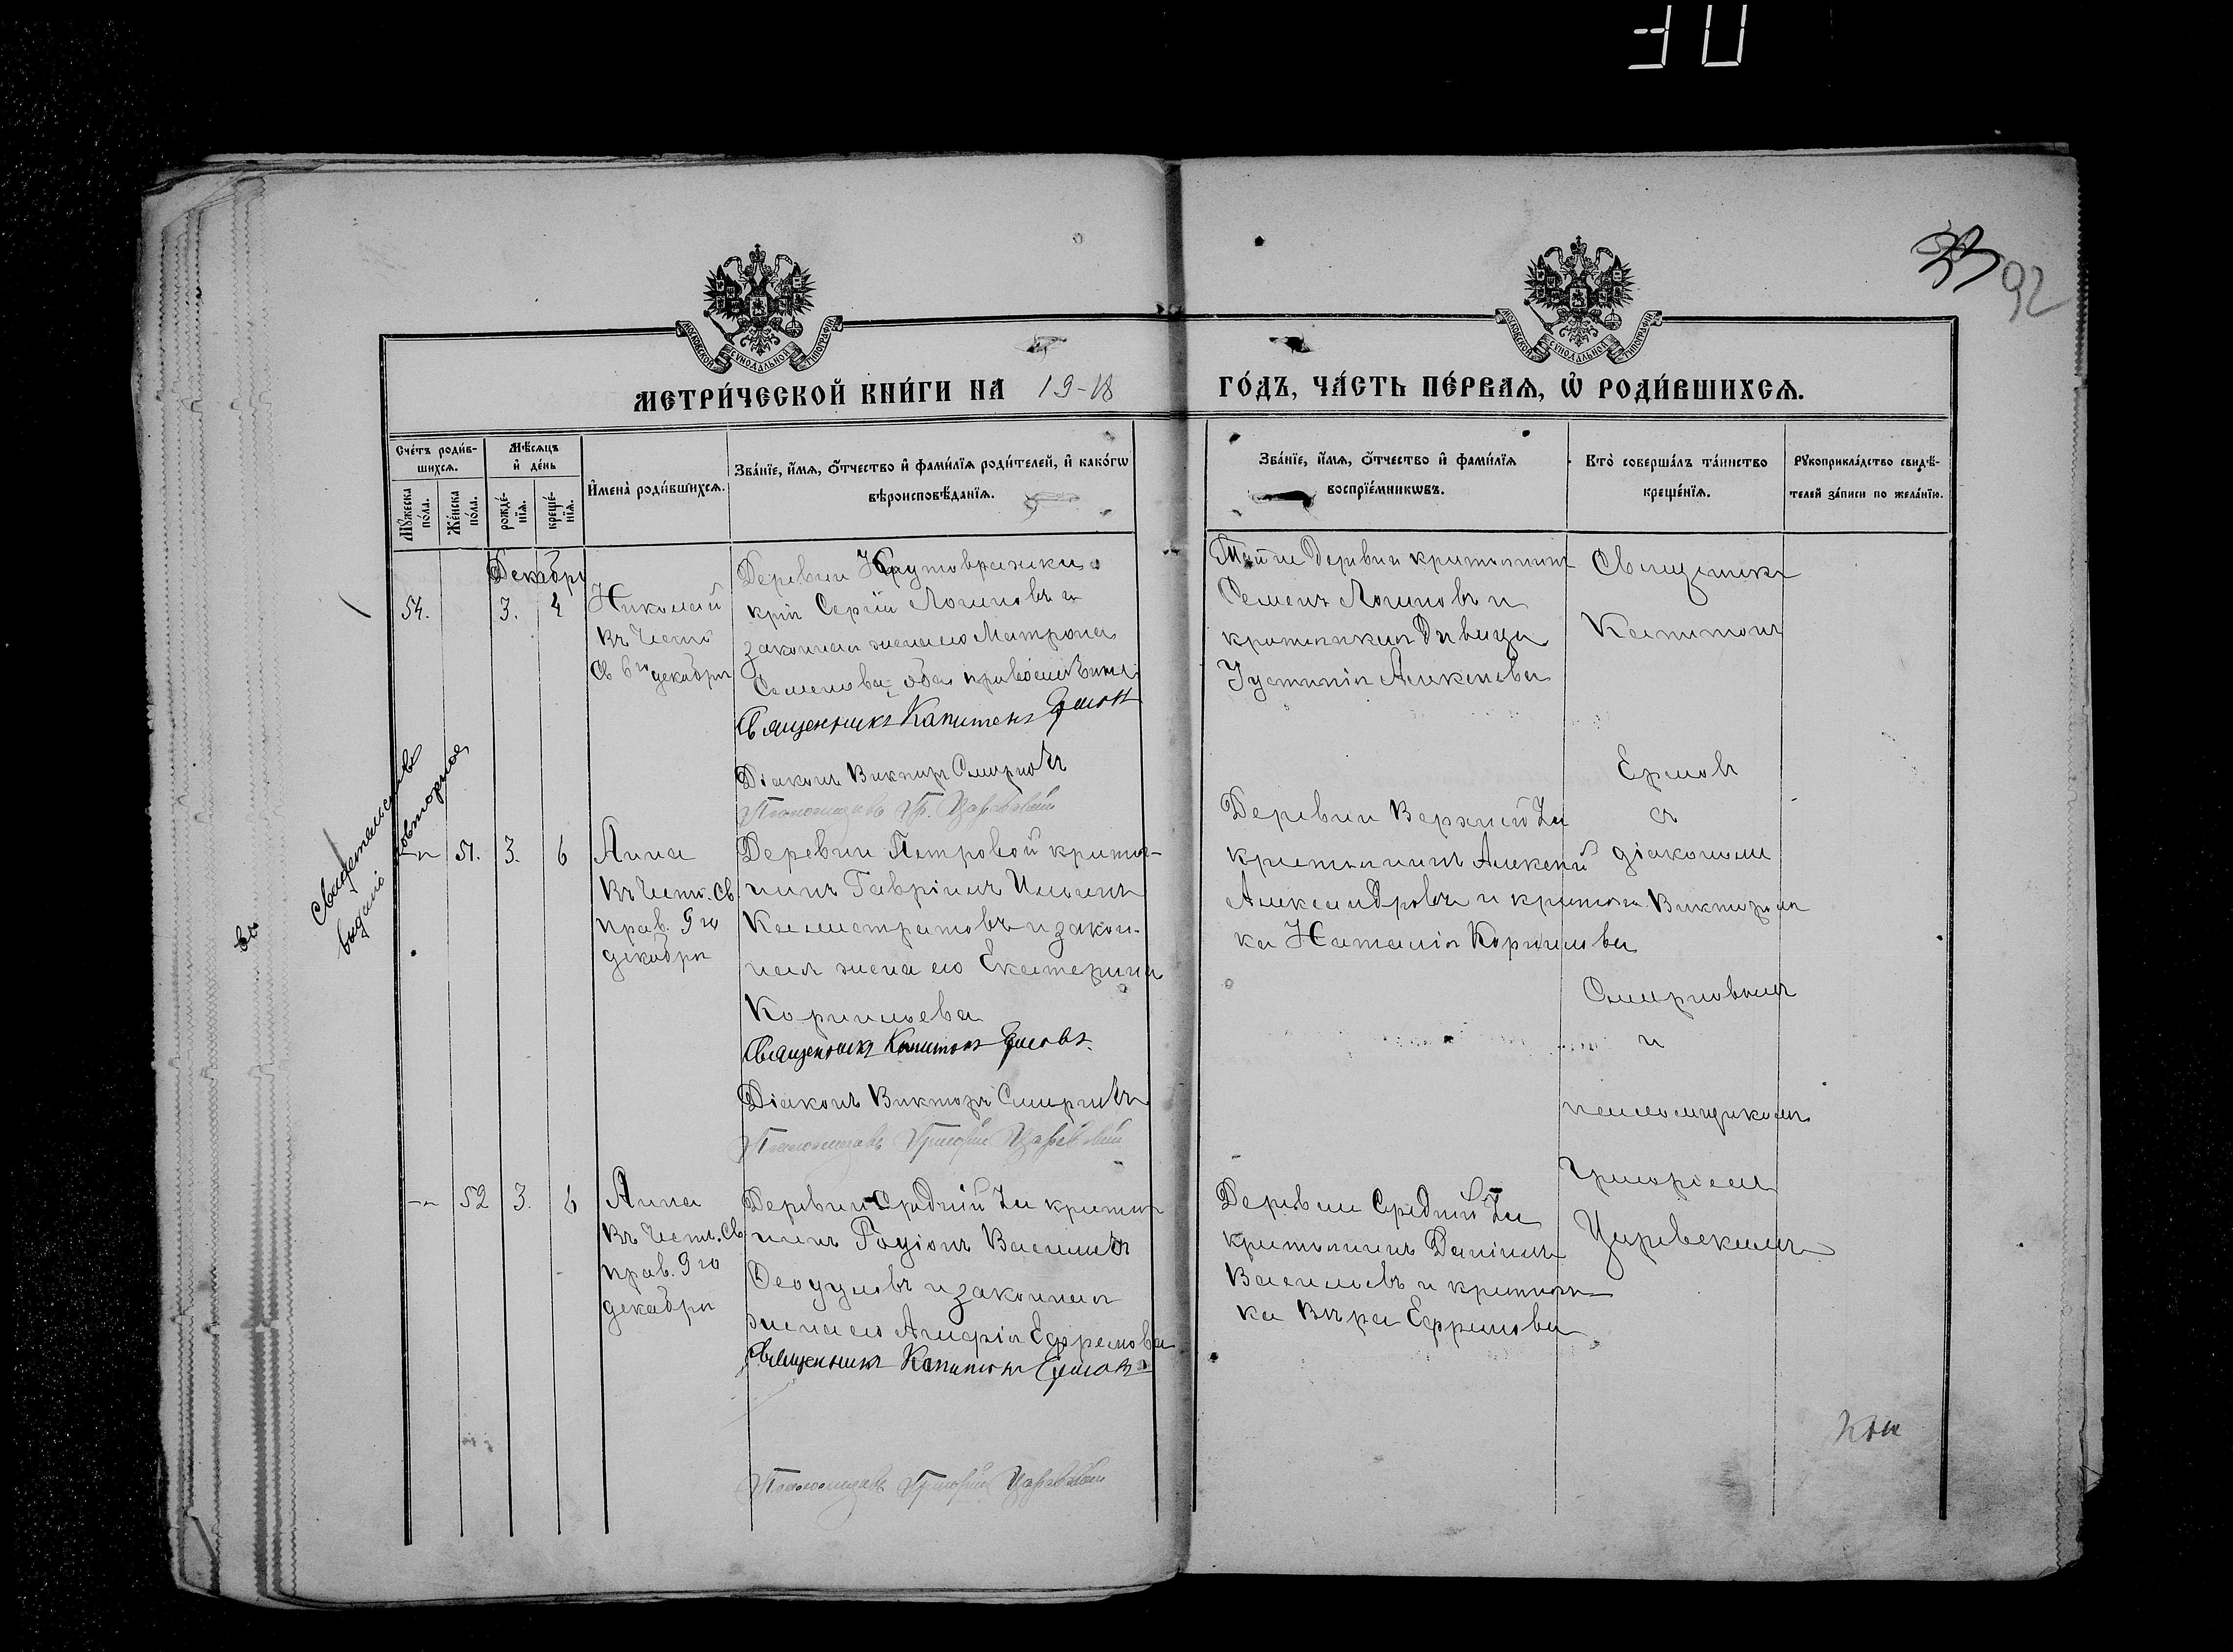 33
92
МОСКОВСКОЙ СѴНОДАЛЬНОЙ ТИПОГРАФІИ
МОСКОВСКОЙ СѴНОДАЛЬНОЙ ТИПОГРАФІИ
МЕТРИ́ЧЕСКОЙ КНИ́ГИ НА 19-18 ГО́ДЪ, ЧА́СТЬ ПЕ́РВАѦ, Ѡ РОДИ́ВШИХСѦ.
Сче́тъ роди́в-
шихсѧ.
Мѣ́сѧцъ
и҆ де́нь
Мꙋ́жеска
по́ла.
Же́нска
по́ла.
рожде́-
нїѧ.
креще́-
нїѧ.
И҆мена̀ роди́вшихсѧ.
Зва́нїе, и҆́мѧ, ѻ҆́тчество и҆ фами́лїѧ роди́телей, и҆ како́гѡ
вѣроисповѣ́данїѧ.
Зва́нїе, и҆́мѧ, ѻ҆́тчество и҆ фами́лїѧ
воспрїе́мникѡвъ.
Кто̀ соверша́лъ та́инство
креще́нїѧ.
Рꙋкоприкла́дство свидѣ́-
телей за́писи по жела́нїю.
Декабрь
54. 3. 4
Николай
въ честь
Св 6го декабря
Деревни Крутовражки
кр Сергій Логиновъ и
законная жена его Матрона
Семенова, оба православные
Священникъ Капитонъ Ермовъ
Діаконъ Викторъ Смирновъ
Псаломщикъ Гр. Царевскій
Той же деревни крестьянинъ
Семенъ Логиновъ и
крестьянская девица
Устинія Алексеева
Священникъ
Капитонъ
Ермовъ
съ
діакономъ
Викторомъ
Смирновымъ
и
псаломщикомъ
Григоріемъ
Царевскимъ
Свидетельство
выдано повторное
51. 3. 6
Анна
въ честь Св.
прав. 9го
декабря
Деревни Петровой крестья-
нинъ Гавріилъ Ильинъ
Калистратовъ и закон-
ная жена его Екатерина
Корнильева
Священникъ Капитонъ Ермовъ
Діаконъ Викторъ Смирновъ
Псаломщикъ Григорій Царевскій
Деревни Верхней
крестьянинъ Алексей
Александровъ и крестьян
ка Наталія Корнилова
52 3. 6
Анна
въ честь Св.
прав. 9го
декабря
Деревни Средній крестья
нинъ Родіонъ Васильевъ
Феодуловъ и законная
жена его Агафія Ефремова
Священникъ Капитонъ Ермовъ
Псаломщикъ Григорій Царевскій
Деревни Средній
крестьянинъ Даніилъ
Васильевъ и крестьян
ка Вера Ефремова